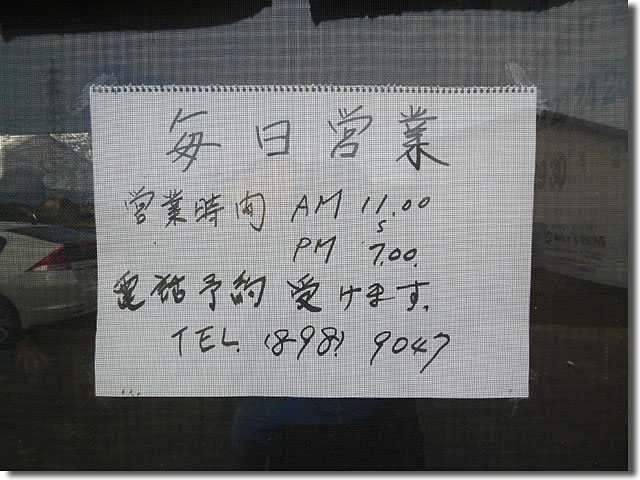 毎日営業
営業時間 AM 11.00
〜
PM 7.00.
電話予約 受けます.
TEL. (898) 9047